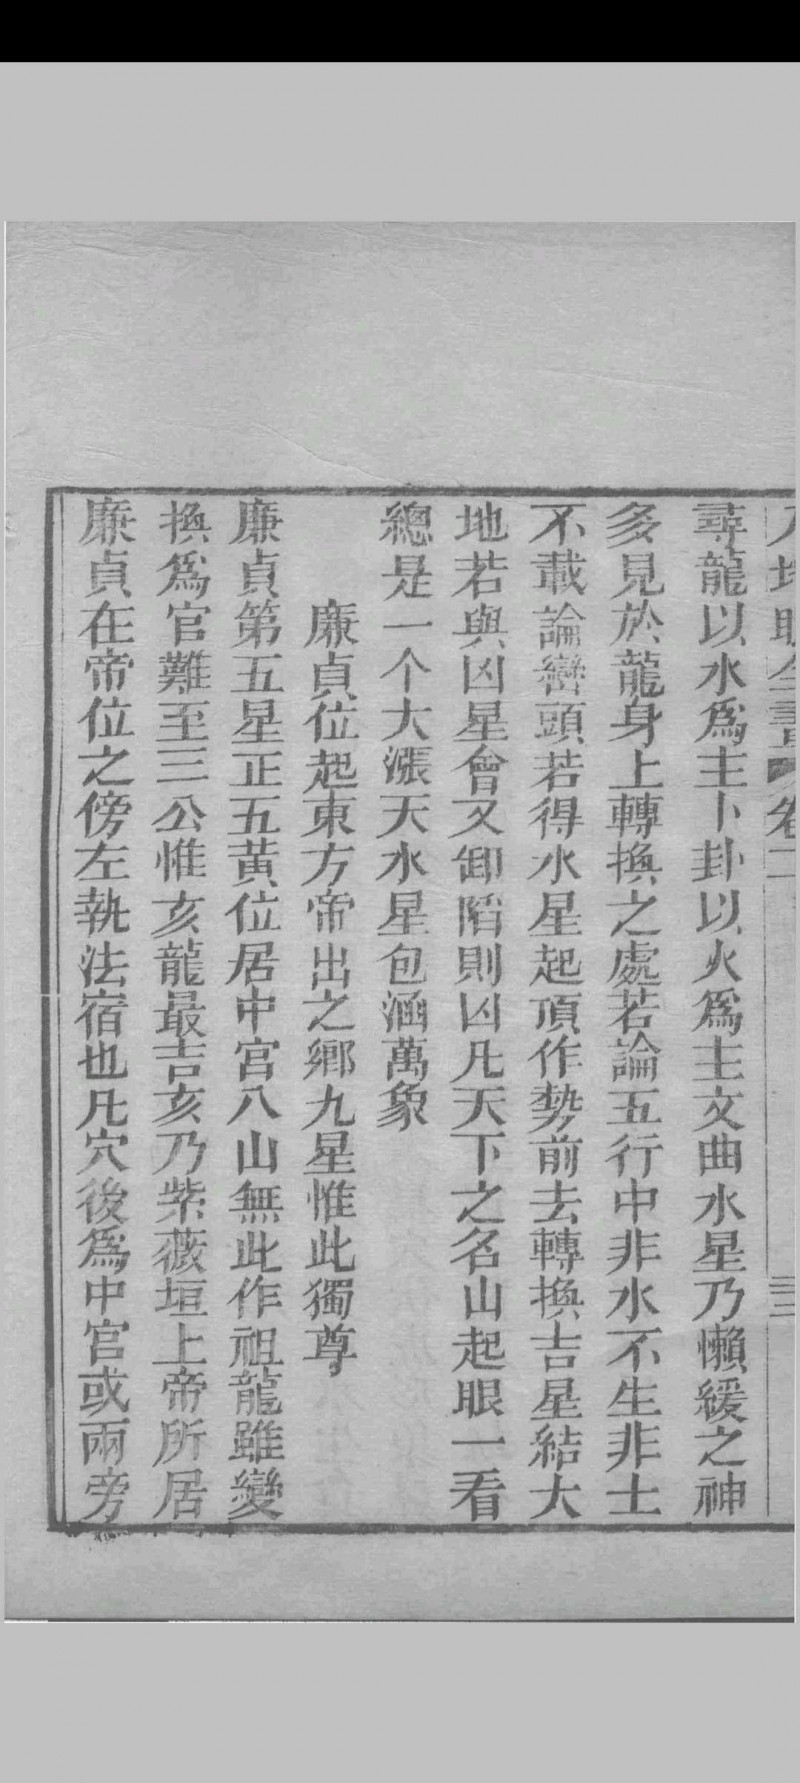 卷二
尋龍以水爲主卜卦以火爲主文曲水星乃懶緩之神
多見於龍身上轉換之處若論五行中非水不生非土
不載論巒頭若得水星起頂作勢前去轉換吉星結大
地若與凶星會又卸陷則凶凡天下之名山起眼一看
總是一个大漲天水星包涵萬象
廉貞位起東方帝出之鄉九星惟此獨尊
廉貞第五星正五黃位居中宮八山無此作祖龍雖變
換爲官難至三公惟亥龍最吉亥乃紫薇垣上帝所居
廉貞在帝位之傍左執法宿也凡穴後爲中宮或兩旁